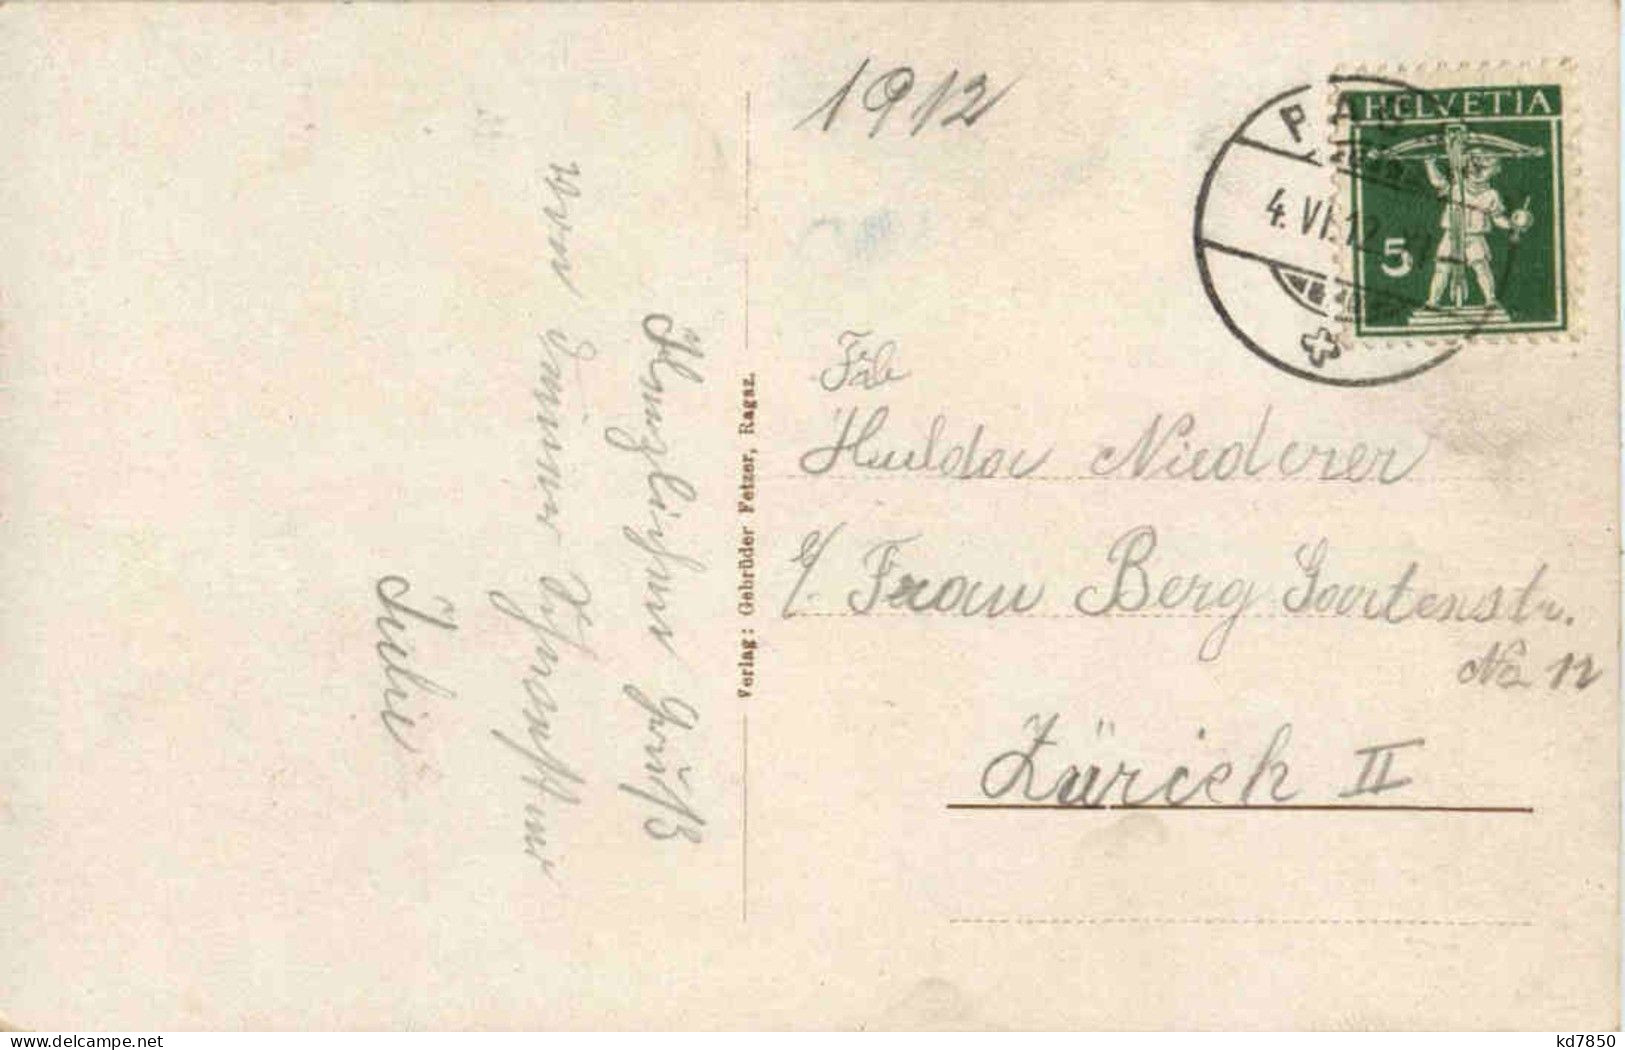 1912
HELVETIA
5
4. VI. 12.
Frl
Hulda Niederer
c/. Frau Berg Gartenstr.
No 12
Zürich II
Verlag: Gebrüder Fetzer, Ragaz.
Herzlichen Gruß
von Deiner
Julie
www.delcampe.net
kd7850